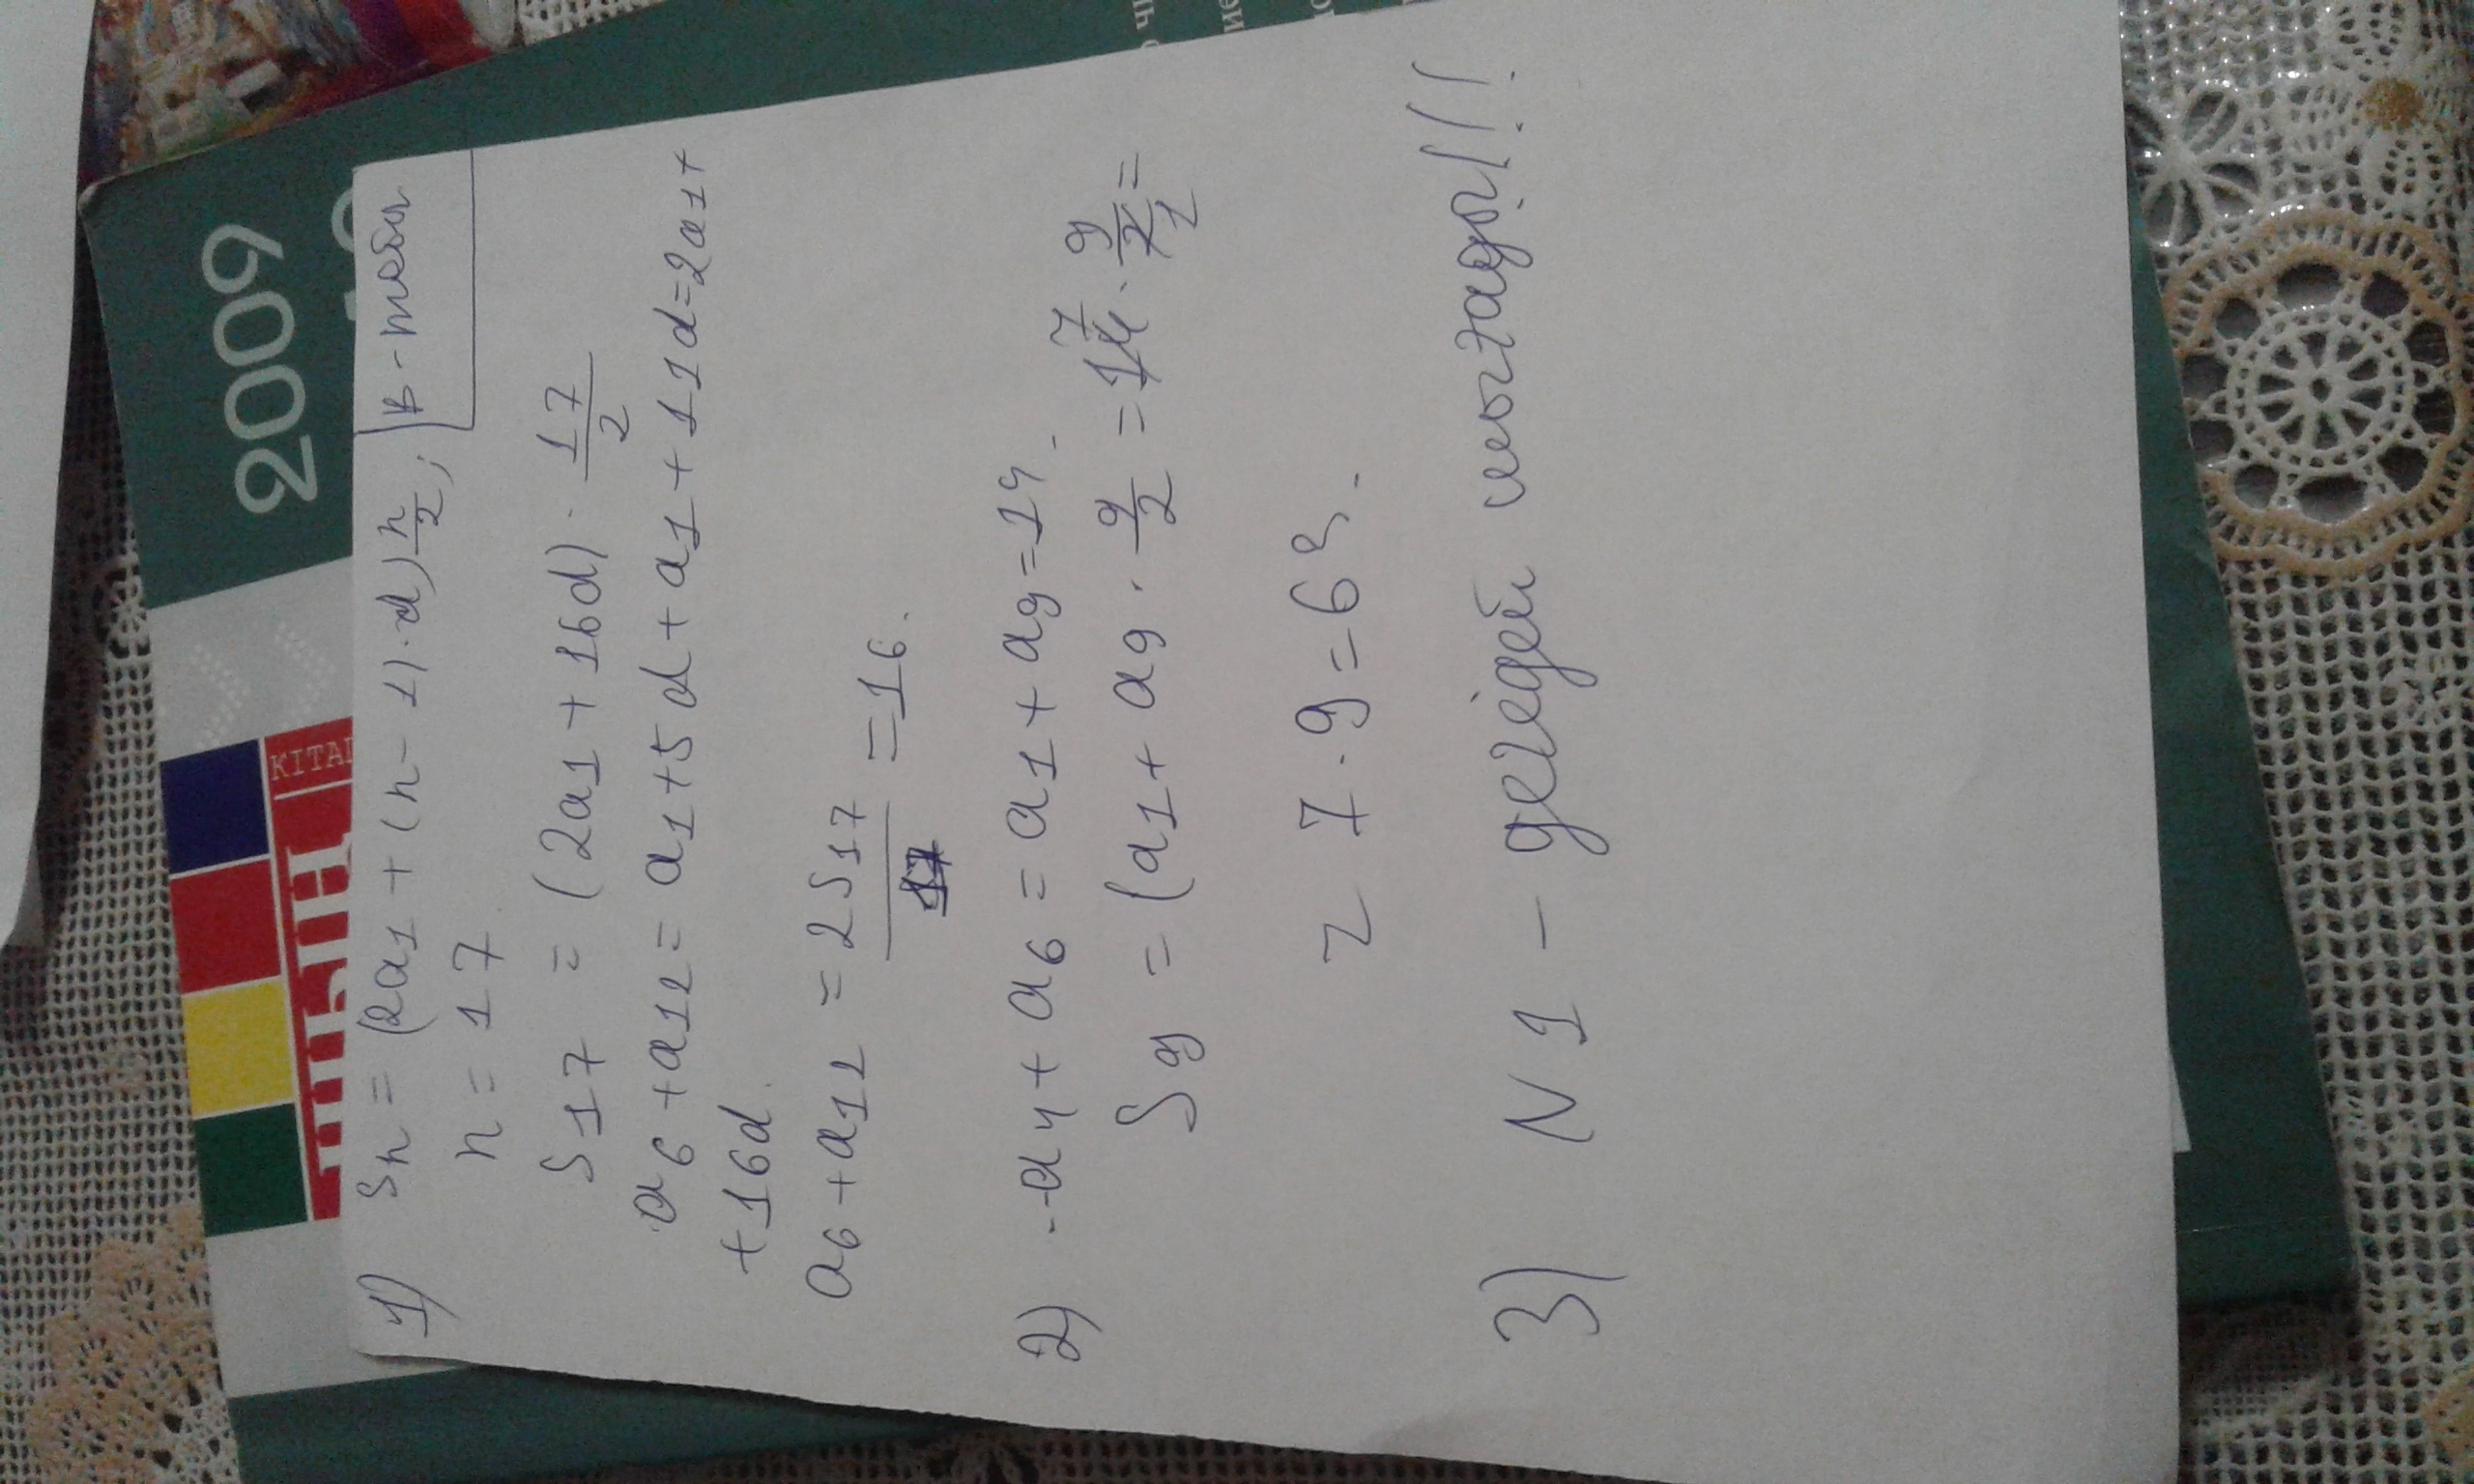 2009
KITAP
1) Sn = (2a1 + (n-1)·d) n/2; B-тобы
n = 17
S17 = (2a1 + 16d) · 17/2
a6 + a12 = a1 + 5d + a1 + 11d = 2a1 +
+ 16d.
a6 + a12 = 2S17/17 = 16.
2) a4 + a6 = a1 + a9 = 14.
S9 = (a1 + a9 · 9/2 = 14 7 · 9/2 1 =
= 7·9 = 63.
3) N 1 - дегідей шығады!!!